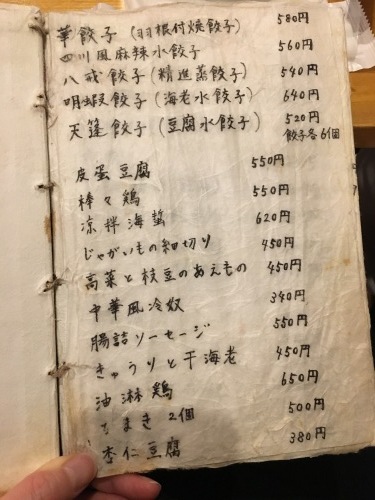 華餃子(羽根付焼餃子) 580円
四川風麻辣水餃子 560円
八戒餃子(精進蒸餃子) 540円
明蝦餃子(海老水餃子) 640円
天篷餃子(豆腐水餃子) 520円
餃子各6個
皮蛋豆腐 550円
棒々鶏 550円
凉拌海蜇 620円
じゃがいもの細切り 450円
高菜と枝豆のあえもの 450円
中華風冷奴 340円
腸詰ソーセージ 550円
きゅうりと干海老 450円
油淋鶏 650円
ちまき 2個 500円
杏仁豆腐 380円